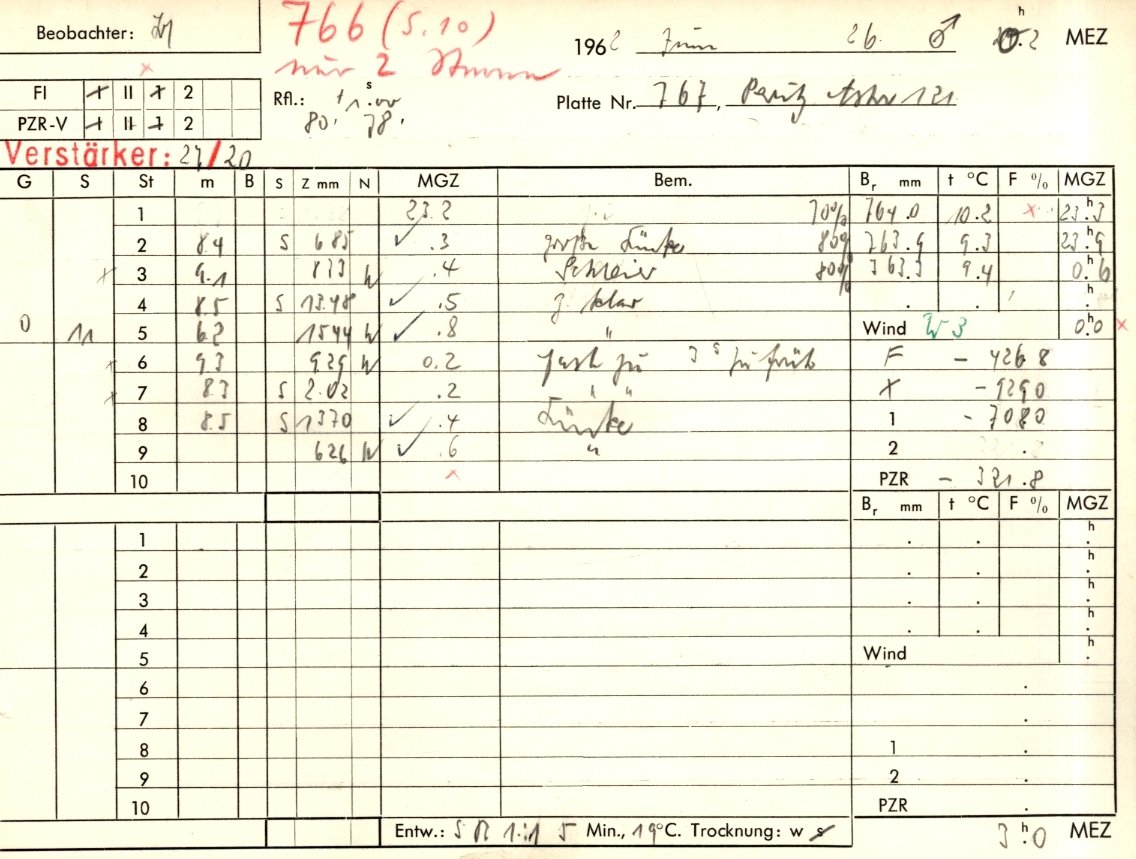 Beobachter:
766 (5.10)
nur 2
1962 Juni 26. ♂ h .2 MEZ
FI I II I 2
PZR-V I II I 2
Rfl.: s
80. 78.
Platte Nr. 767,
Verstärker: 27/20
G S St m B S Z mm N MGZ Bem. Br mm t °C F % MGZ
1 23.2 70% 764.0 10.2 × 23.h3
2 8.4 S 685 ✓ .3 große Lücke 80% 763.9 9.3 23.h9
3 9.1 833 W .4 Schleier 80% 763.3 9.4 0.h6
4 8.5 S 1348 ✓ .5 z. klar . . h.
0 11 5 6.2 1544 W ✓ .8 " Wind W 3 0.h0 ×
6 9.3 929 W 0.2 fast zu 3 s zu früh F - 4268
7 8.3 S 2.02 .2 " " X - 9290
8 8.5 S 1370 ✓ .4 Lücke 1 - 7080
9 626 W ✓ .6 " 2 .
10 × PZR - 321.8
Br mm t °C F % MGZ
1 . . h.
2 . . h.
3 . . h.
4 . . h.
5 Wind h.
6 .
7 .
8 1 .
9 2 .
10 PZR .
Entw.: 1:1 5 Min., 19°C. Trocknung: w s 3.h0 MEZ